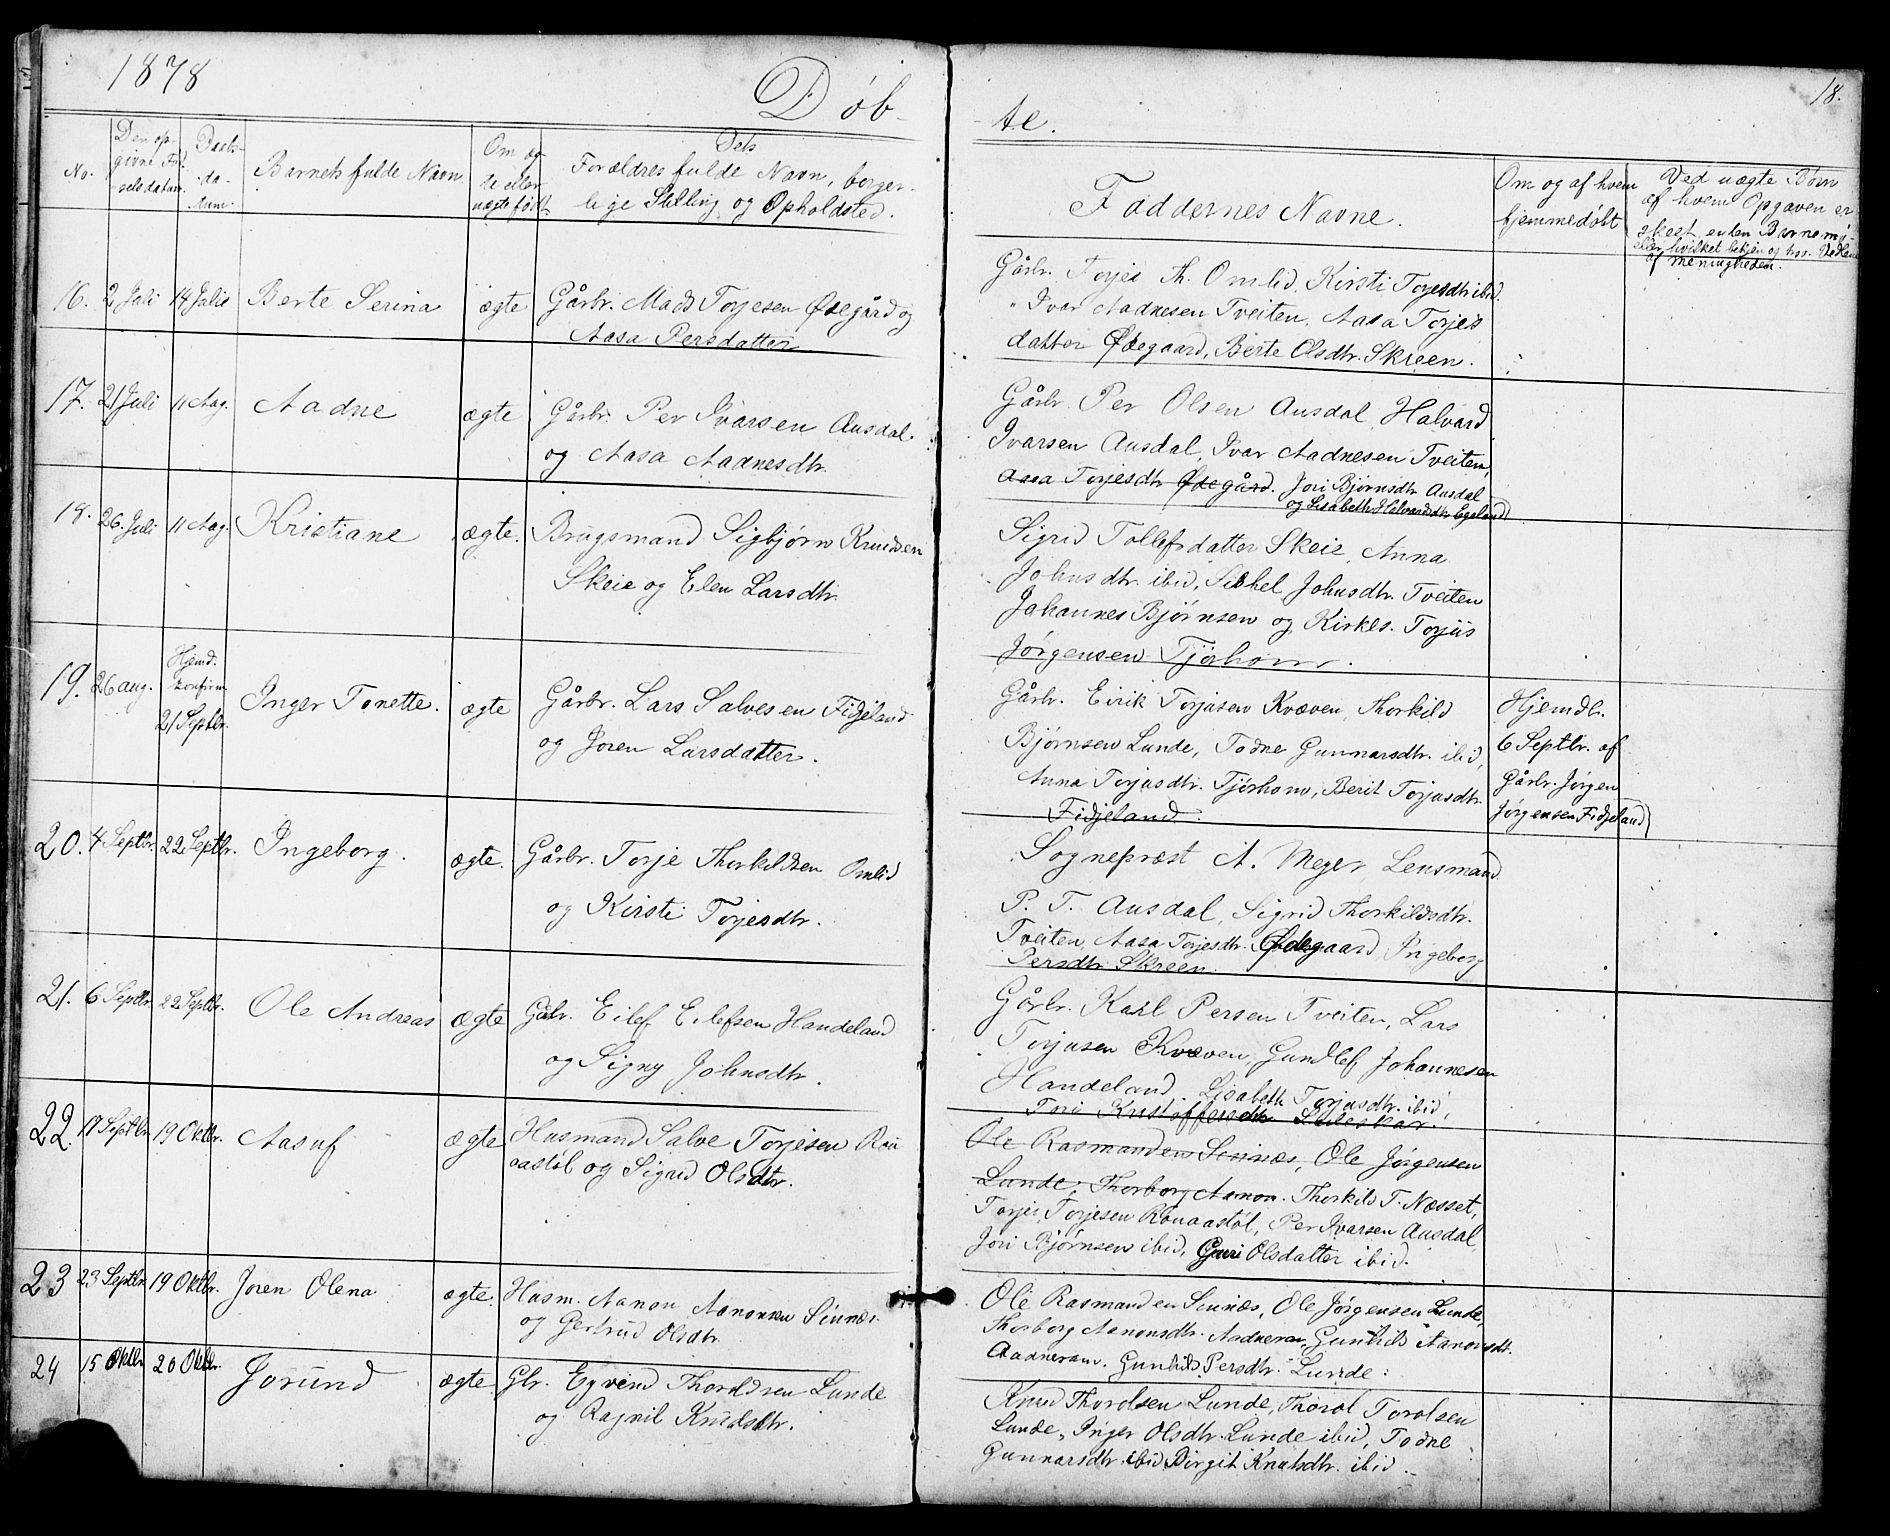 1878
Døb-
te.
18.
No.
Den op-
givne Fød-
selsdatum.
Daabs-
da-
tum.
Barnets fulde Navn
Om æg-
te eller
uægte født.
Dets
Forældres fulde Navn, borger-
lige Stilling og Opholdsted.
Faddernes Navne.
Om og af hvem
hjemmedøbt
Ved uægte Børn
af hvem Opgaven er
skeet
af menigheden.
16. 2 Juli 14 Juli Berte Serina ægte Gårbr. Mads Torjesen Ødegård og
Aasa Persdatter
Gårbr. Torjei Th. Omlid, Kirsti Torjesdtr ibid.
" Ivar Aadnesen Tveiten, Aasa Torjeis
datter Ødegaard, Berte Olsdtr. Skreen.
17. 21 Juli 11 Aug. Aadne ægte Gårbr. Per Ivarsen Ausdal
og Aasa Aadnesdtr.
Gårbr. Per Olsen Ausdal, Halvard
Ivarsen Ausdal, Ivar Aadnesen Tveiten,
Aasa Torjesdtr Ødegård. Jori Bjørnsdtr Ausdal
og Lisabeth Halvardsdtr Egeland
18. 26 Juli 11 Aug. Kristiane ægte. Brugsmand Sigbjørn Knudsen
Skeie og Elen Larsdtr.
Sigrid Tollefsdatter Skeie, Anna
Johnsdtr. ibid, Sibbel Johnsdtr. Tveiten
Johannes Bjørnsen og Kirkes. Torjus
Jørgensen Tjørhom.
19. 26 aug. Hjemd.
konfirm.
21 Septbr. Inger Tonette. ægte Gårbr. Lars Salvesen Fidjeland
og Joren Larsdatter.
Gårbr. Eirik Torjusen Kvæven, Thorkild
Bjørnsen Lunde, Todne Gunnarsdtr. ibid,
Anna Torjusdtr. Tjørhom, Berit Torjusdtr.
Fidjeland.
Hjemdb.
6 Septbr. af
Gårbr. Jørgen
Jørgensen Fidjeland
20. 4 Septbr. 22 Septbr. Ingeborg. ægte. Gårbr. Torje Thorkildsen Omlid
og Kirsti Torjesdtr.
Sognepræst A. Meyer, Lensmand
P. T. Ausdal, Sigrid Thorkildsdtr.
Tveiten, Aasa Torjesdtr. Ødegaard, Ingeborg
Persdtr Skreen.
21. 6 Septbr. 22 Septbr. Ole Andreas ægte Gbr. Eilef Eilefsen Handeland
og Signy Johnsdtr.
Gårbr. Karl Persen Tveiten, Lars
Torjusen Kvæven, Gundlef Johannesen
Handeland, Lisabeth Torjusdtr. ibid,
Tori Kristoffersdtr Lideskar.
22. 17 Septbr. 19 Oktbr. Aasuf ægte. Husmand Salve Torjesen Rou
aastøl og Sigrid Olsdtr.
Ole Rasmandsen Sinnæs, Ole Jørgensen
Lunde, Thorborg Aanon. Thorkild T. Næsset,
Torjei Torjesen Rouaastøl, Per Ivarsen Ausdal,
Jori Bjørnsen ibid, Guri Olsdatter ibid.
23 23 Septbr. 19 Oktbr. Joren Olena ægte. Husm. Aanon Aanonsen Sinnæs
og Gertrud Olsdtr.
Ole Rasmandsen Sinnæs, Ole Jørgensen Lunde,
Thorborg Aanonsdtr. Aadneram, Gunhild Aanonsdt.
Aadneram. Gunhild Persdtr. Lunde.
24 15 Oktbr 20 Oktbr. Jorund ægte. Gbr. Eyvind Thoroldsen Lunde
og Ragnil Knudsdtr.
Knud Thorolsen Lunde, Thorol Torolsen
Lunde, Inger Olsdtr. Lunde ibid, Todne
Gunnarsdtr. ibid, Birgit Knutsdtr. ibid.